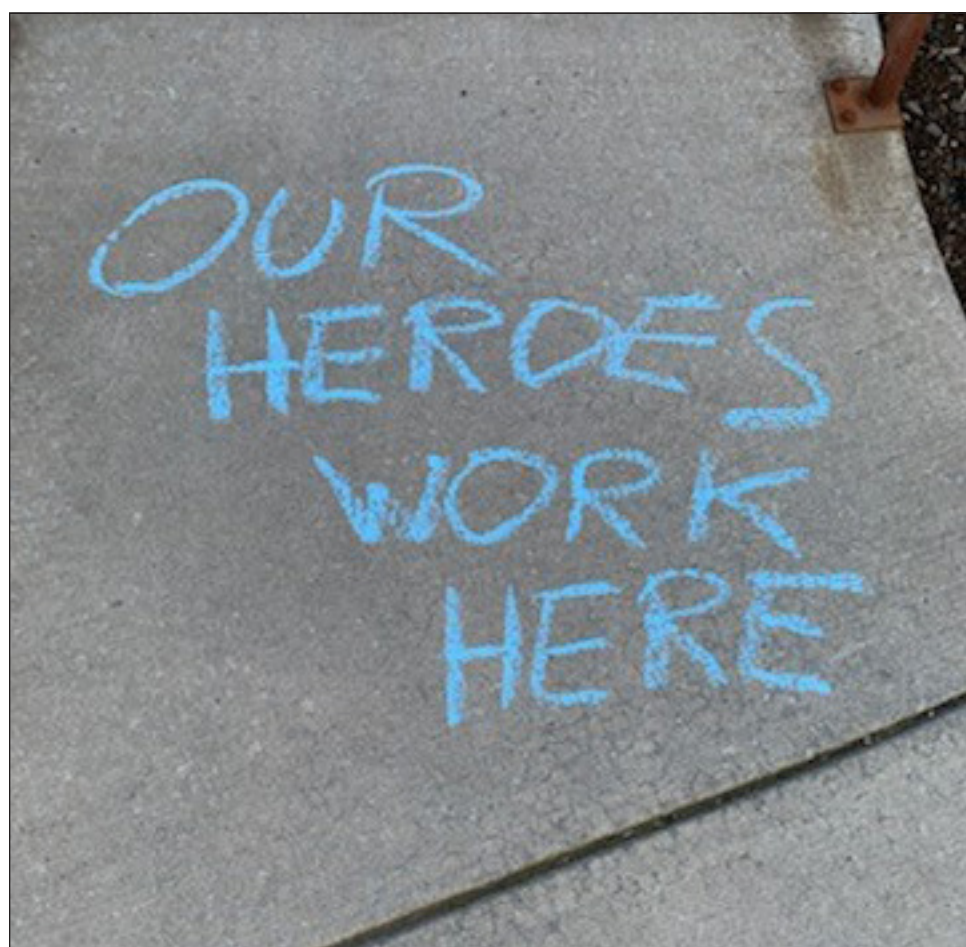 OUR
HEROES
WORK
HERE